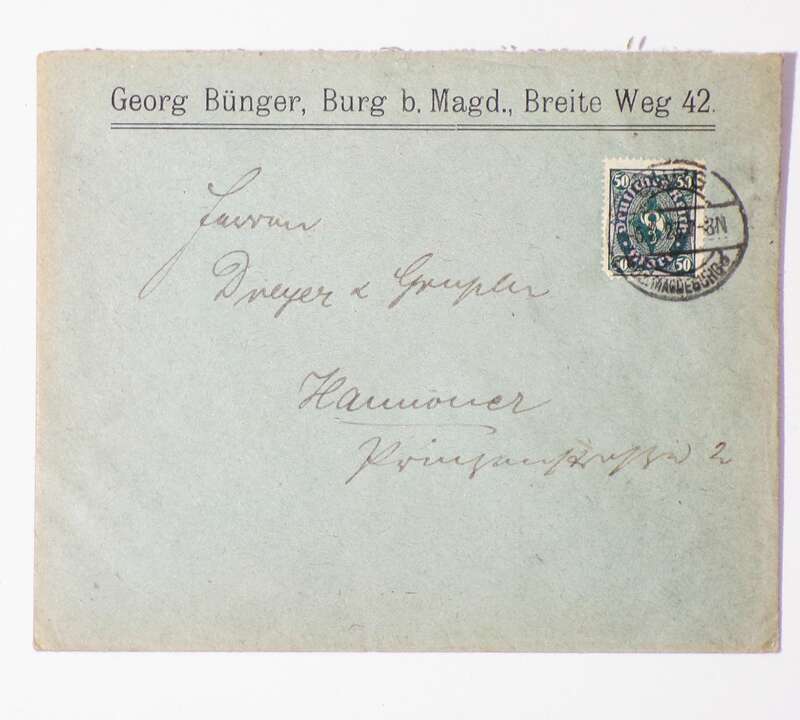 Georg Bünger, Burg b. Magd., Breite Weg 42.
50 50
Deutsches Reich
50
-8N
MAGDEBURG
Herren
Dreyer &
Hannover
Prinzenstraße 2